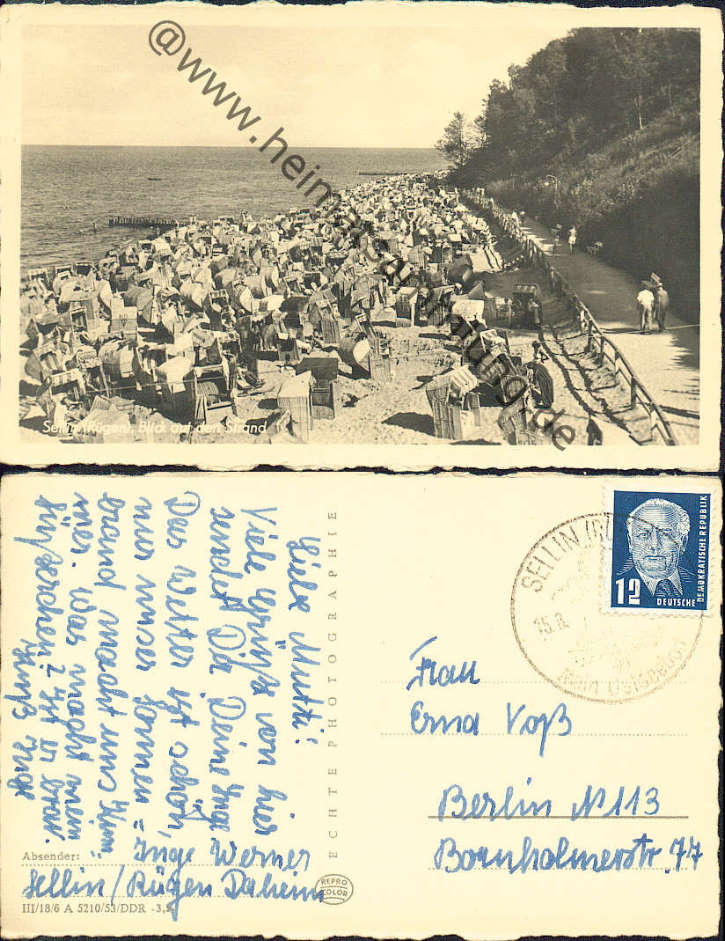 @www.heimatsammlung.de
Sellin (Rügen), Blick auf den Strand
Liebe Mutti!
Viele Grüße von hier
sendet Dir Deine Inge
Das Wetter ist schön,
nur unser Sonnen =
brand macht uns
was macht mein
Ist er brav.
Gruß Inge
ECHTE PHOTOGRAPHIE
Absender: Inge Werner
Sellin/Rügen Daheim
III/18/6 A 5210/53/DDR
REPRO COLOR
SELLIN
15.8.
Ostseebad
12
DEUTSCHE DEMOKRATISCHE REPUBLIK
Frau
Erna Voß
Berlin N113
Bornholmerstr. 77